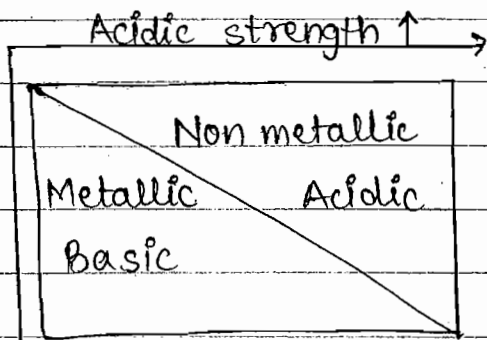 Acidic strength ↑
Non metallic
Metallic Acidic
Basic